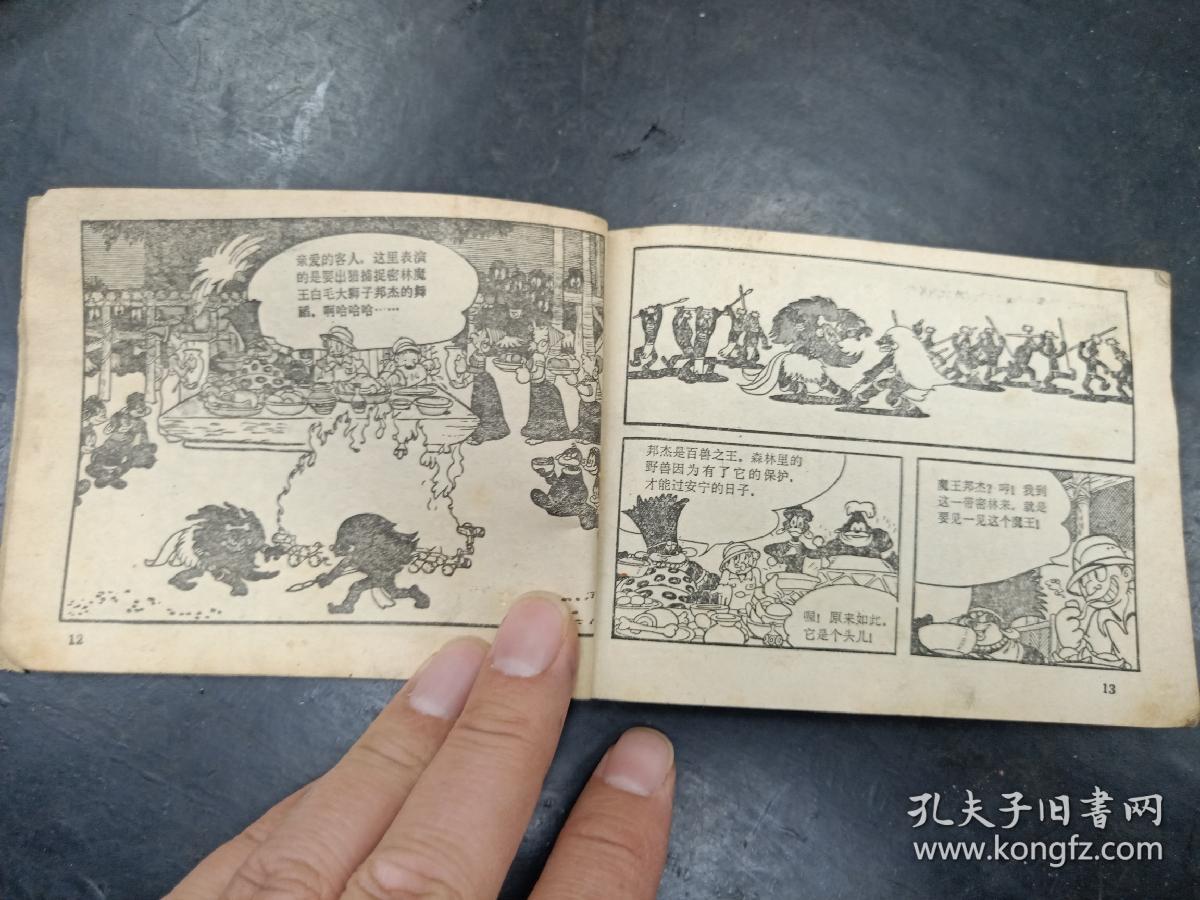 亲爱的客人，这里表演
的是要出猎捕捉密林魔
王白毛大狮子邦杰的舞
蹈。啊哈哈哈……
12
邦杰是百兽之王。森林里的
野兽因为有了它的保护，
才能过安宁的日子。
喔！原来如此，
它是个头儿！
魔王邦杰？哼！我到
这一带密林来，就是
要见一见这个魔王！
13
孔夫子旧書网
www.kongfz.com